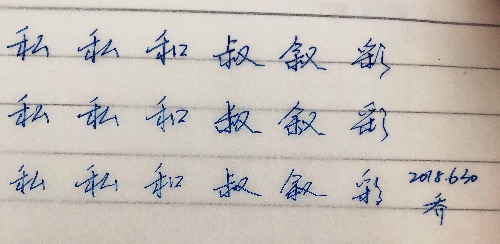 私 私 和 叔 叙 彩
私 私 和 叔 叙 彩
私 私 和 叔 叙 彩 2018.6.30
乔